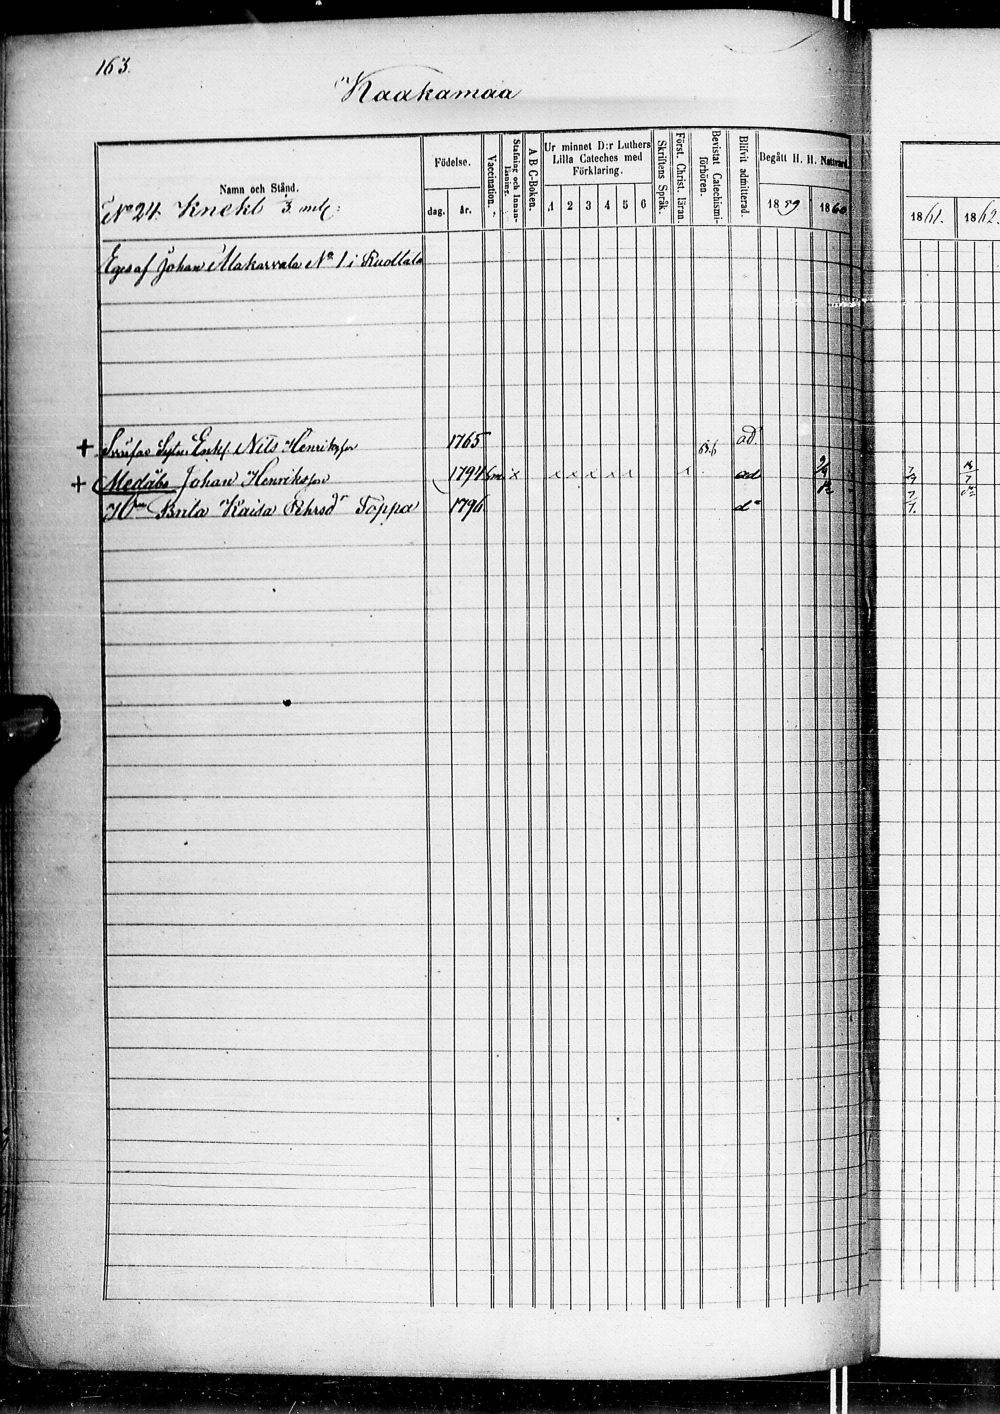 163.
Kaakamaa
Namn och Stånd.
Födelse.
dag.
år.
Vaccination.
Stafning och Innanläsning.
A B C-Boken.
Ur minnet D:r Luthers
Lilla Cateches med
Förklaring.
1 2 3 4 5 6
Skriftens Språk.
Först. Christ. läran.
Bevistat Catechismiförhören.
Blifvit admitterad.
Begått H. H. Nattvard.
1859
1860
1861.
1862.
No 24. Knekt 3. mtl:
Eges af Johan Makarvala No 1 i Ruottala
+ Enkl Nils Henriksson 1765 ad.
+ Medåbo Johan Henriksson 1794 x x x x x x ad
Kaisa Ehrsdr Toppa 1796 do